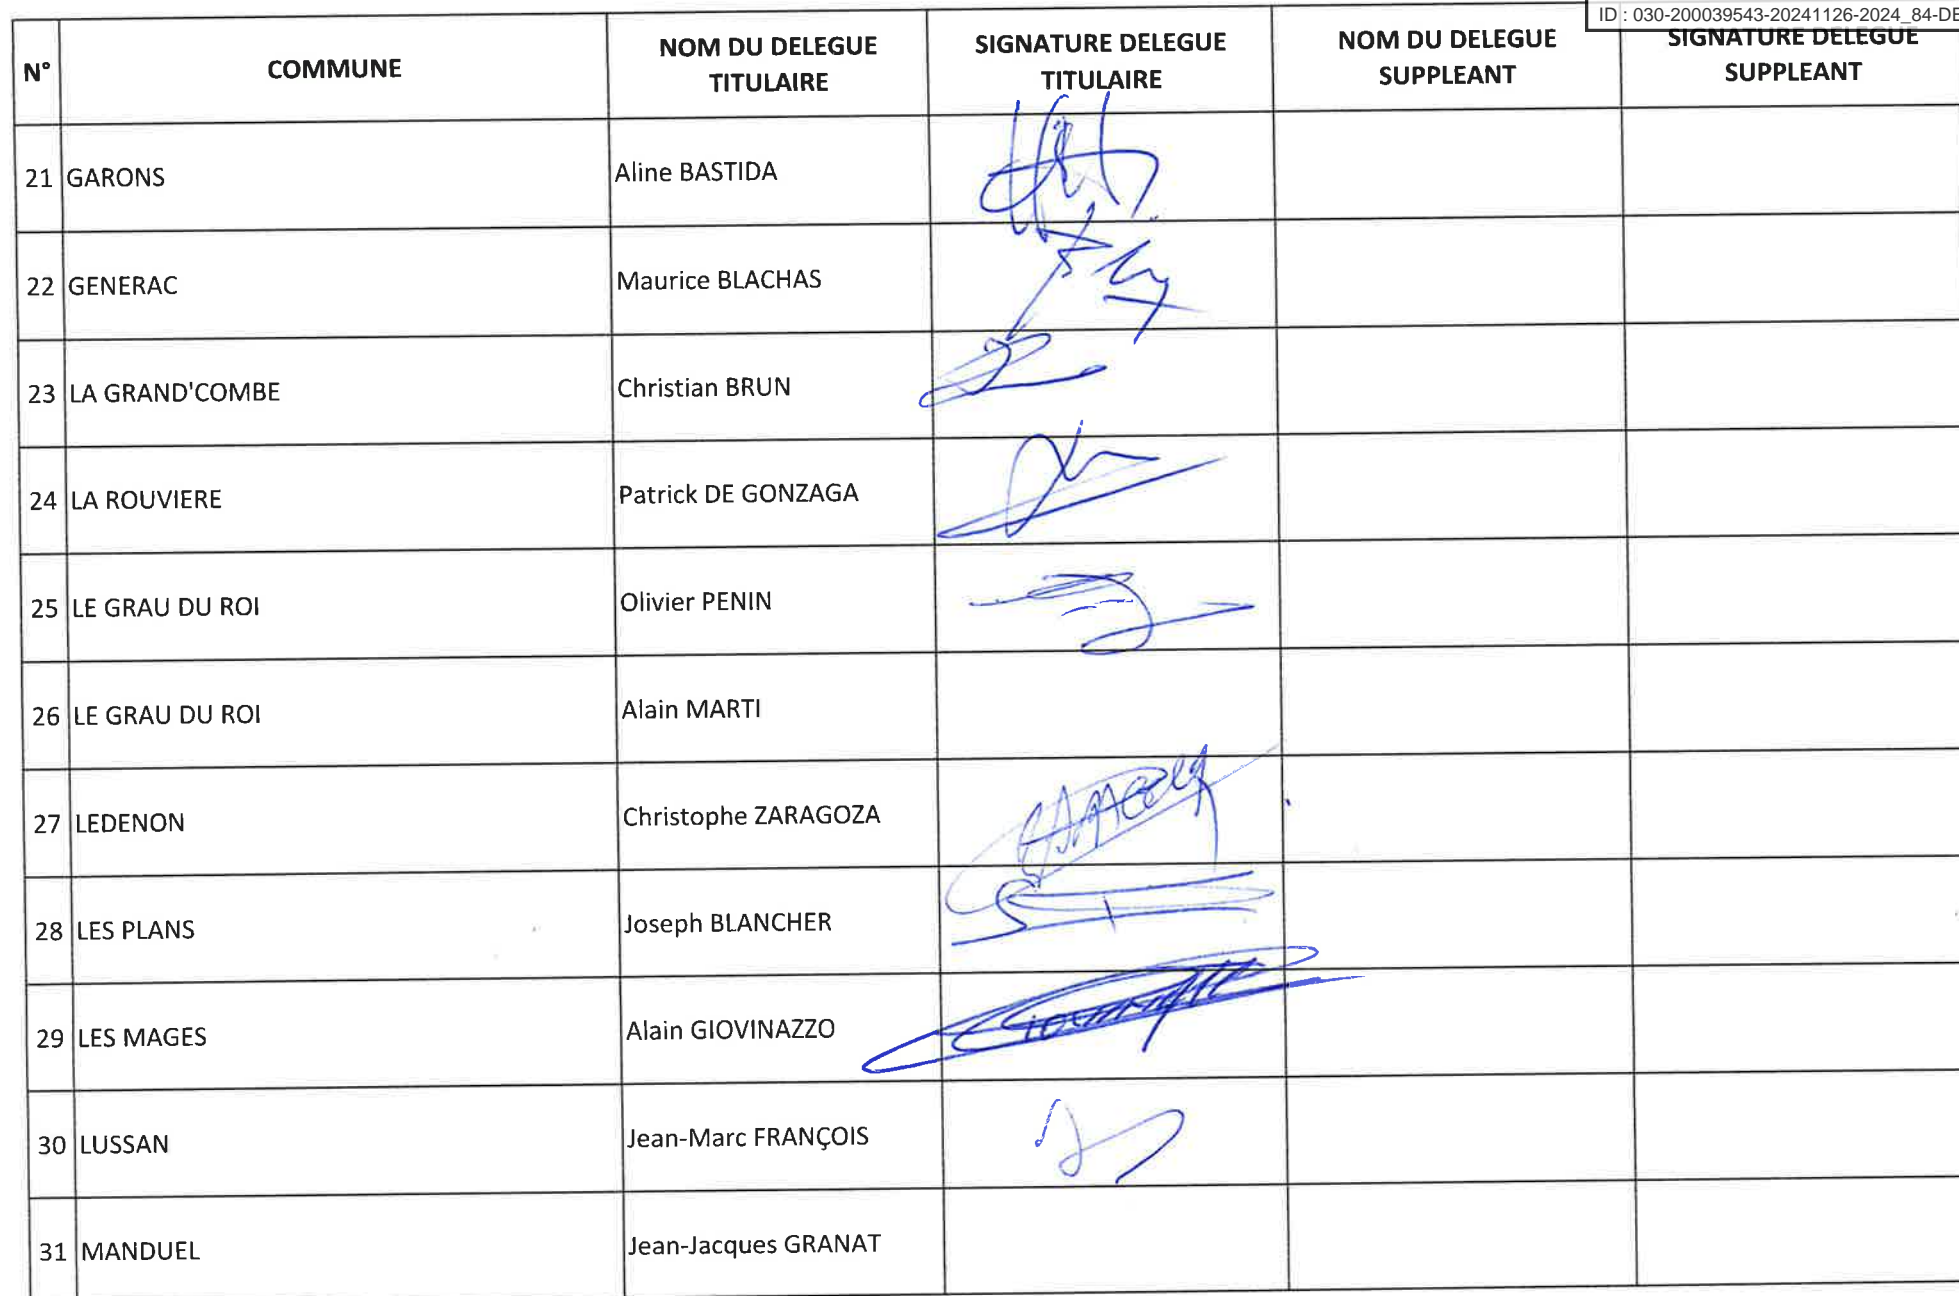 ID : 030-200039543-20241126-2024_84-DE
N° COMMUNE NOM DU DELEGUE TITULAIRE SIGNATURE DELEGUE TITULAIRE NOM DU DELEGUE SUPPLEANT SIGNATURE DELEGUE SUPPLEANT
21 GARONS Aline BASTIDA
22 GENERAC Maurice BLACHAS
23 LA GRAND'COMBE Christian BRUN
24 LA ROUVIERE Patrick DE GONZAGA
25 LE GRAU DU ROI Olivier PENIN
26 LE GRAU DU ROI Alain MARTI
27 LEDENON Christophe ZARAGOZA
28 LES PLANS Joseph BLANCHER
29 LES MAGES Alain GIOVINAZZO
30 LUSSAN Jean-Marc FRANÇOIS
31 MANDUEL Jean-Jacques GRANAT